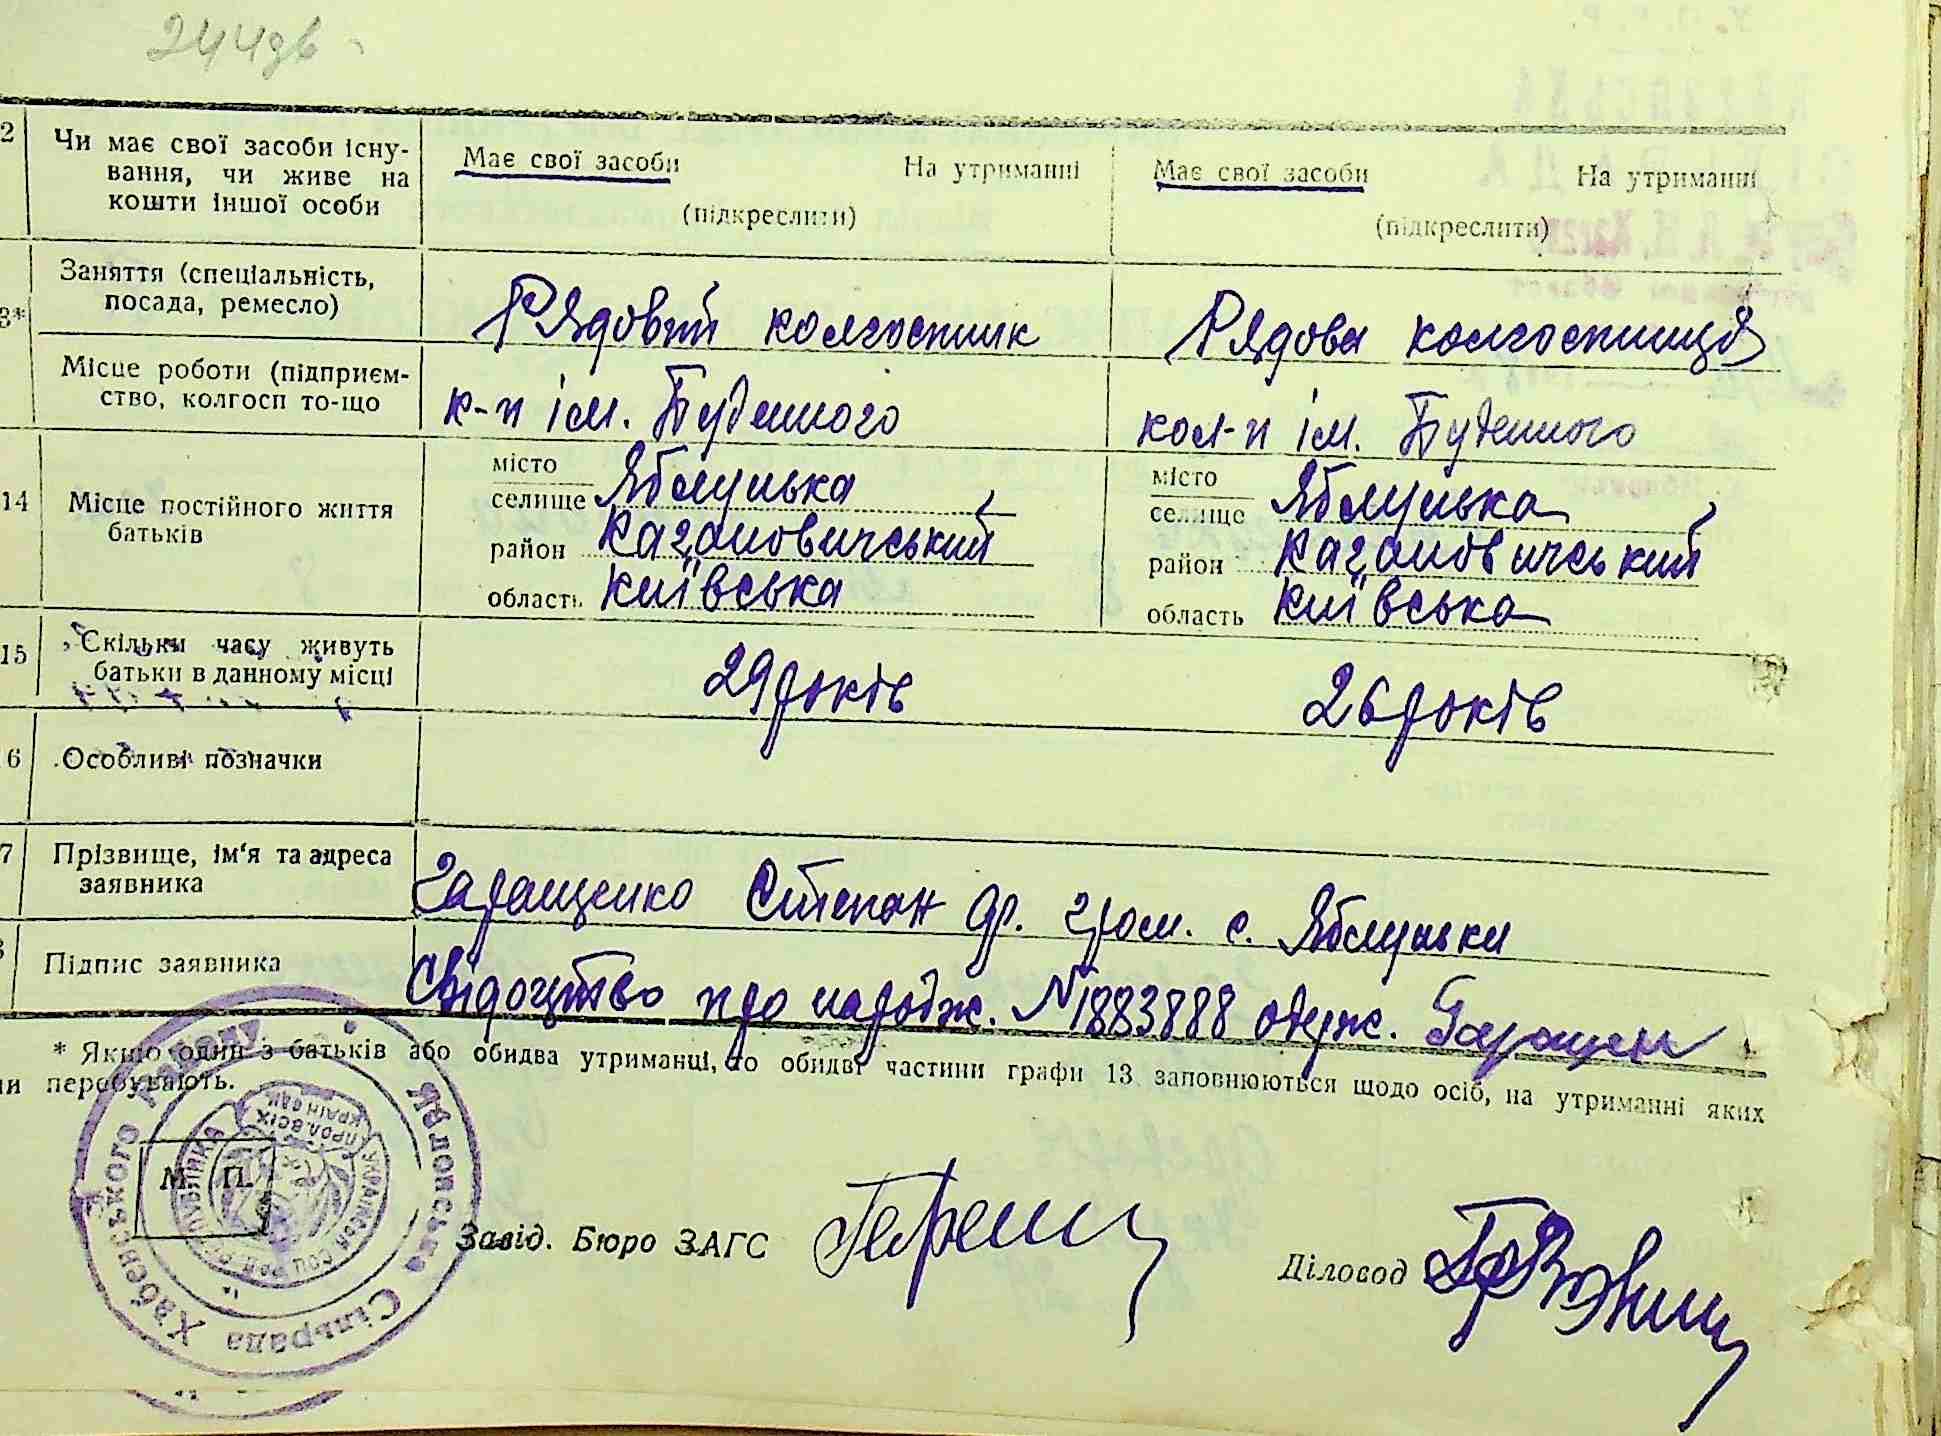 244 зв
2 Чи має свої засоби існу- Має свої засоби На утриманні Має свої засоби На утриманні
вання, чи живе на
кошти іншої особи (підкреслити) (підкреслити)
Заняття (спеціальність, Рядовий колгоспник Рядова колгоспниця
посада, ремесло)
3*
Місце роботи (підприєм- к-п ім. Буденного кол-п ім. Буденного
ство, колгосп то-що
14 Місце постійного життя місто місто
батьків селище Яблунька селище Яблунька
район Кагановичський район Кагановичський
область Київська область Київська
15 Скільки часу живуть 29 років 26 років
батьки в данному місці
6 Особливі позначки
7 Прізвище, ім'я та адреса Гаращенко Степан Ф. гром. с. Яблуньки
заявника
Підпис заявника Свідоцтво про народж. № 1883888 одерж. Гаращен
* Якщо один з батьків або обидва утриманці, то обидві частини графи 13 заповнюються щодо осіб, на утриманні яких
ни перебувають.
М. П.
Хабенського Району
Сільрада
ПРОЛ. ВСІХ
КРАЇН ЄДН.
Завід. Бюро ЗАГС
Діловод